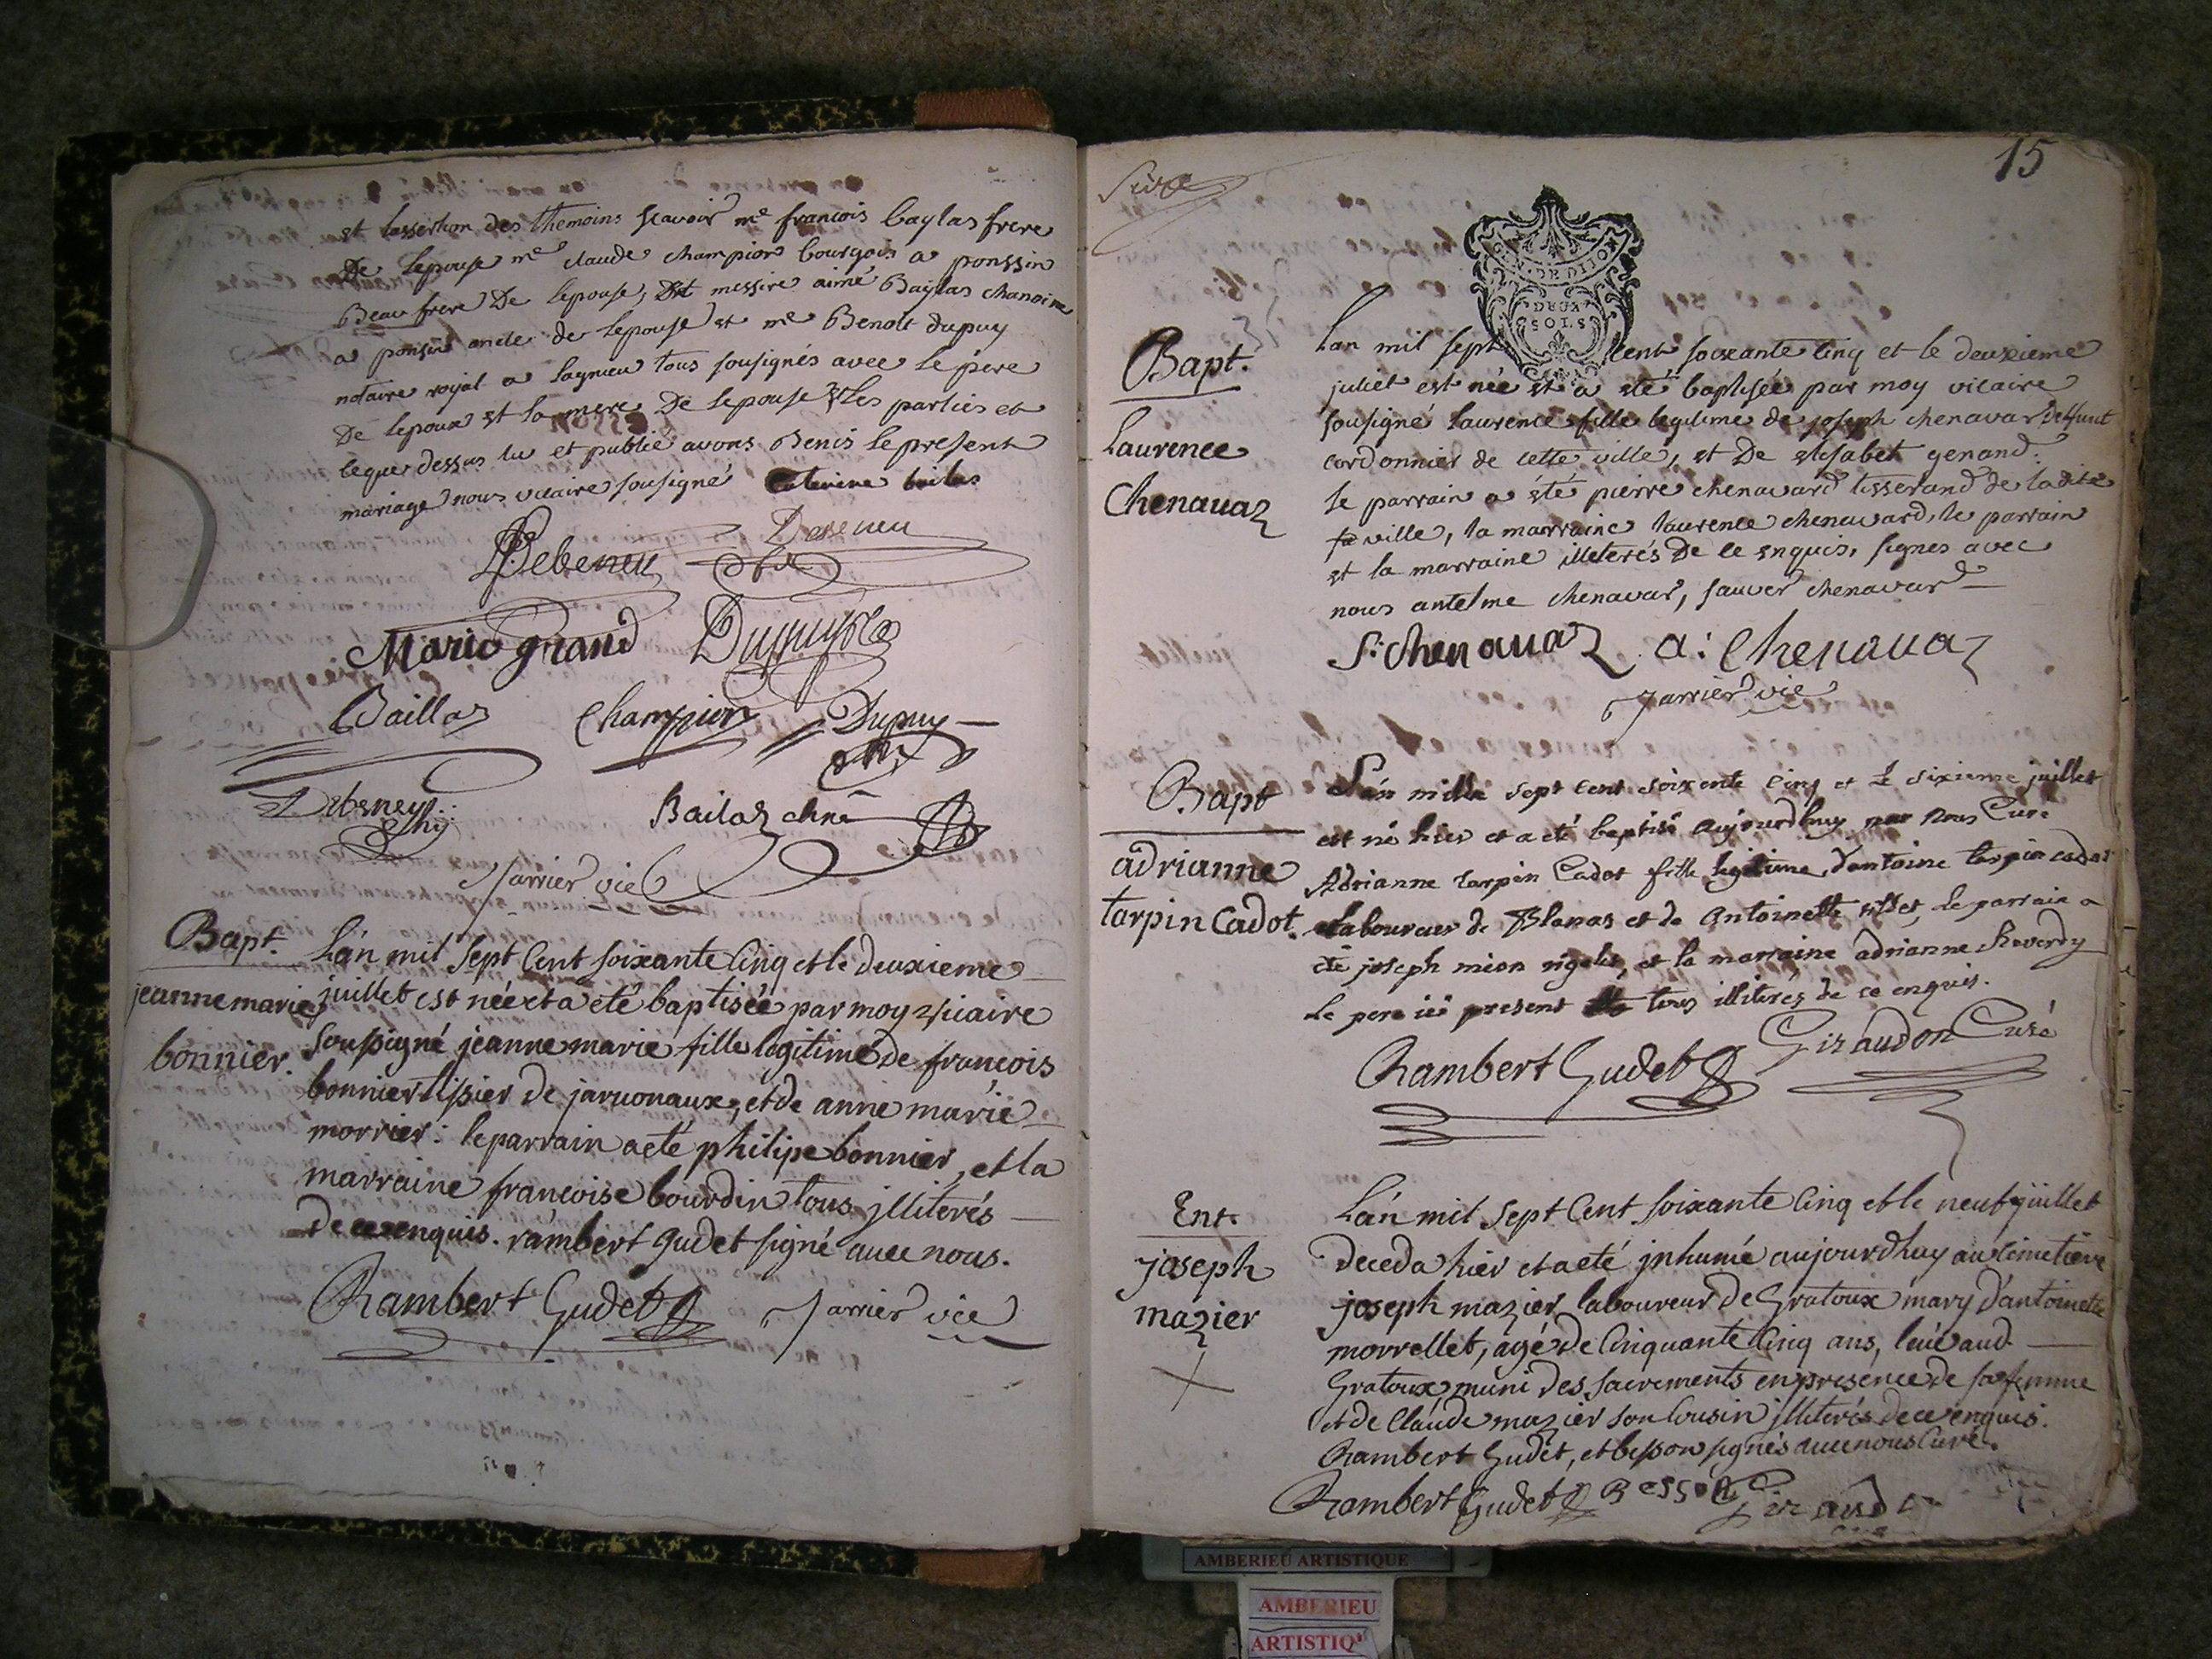 et lassertion des themoins scavoir me francois baylas frere
De lepouse me claude champion bourgois a ponssin
Beau frere De lepouse, messire aimé Baylas chanoine
a ponsin oncle de lepouse et me Benoit dupuy
notaire royal a lagnieu tous sousignés avec le père
De lepoux et la mere De lepouse les parties et
leque dessus lu et publié avons Benis le present
mariage nous vicaire sousigné caterine bailas
Debeney
Marie grand Dupuy
Baillas Champion Dupuy
Debeney
Bailas chne
Jarrier vic
Bapt.
jeanne marie
bonnier.
L'an mil Sept Cent soixante Cinq et le deuxieme
juillet est née et a eté baptisée par moy vicaire
soussigné jeanne marie fille legitime de francois
bonnier tissier de jaruonaux, et de anne marie
morrier: le parrain a eté philipe bonnier, et la
marraine francoise bourdin tous illiterés
de ce enquis. rambert gudet signé avec nous.
Rambert Gudet Jarrier vic
15
Bapt.
Laurence
Chenavaz
GEN. DE DIJON
DEUX
SOLS
Lan mil sept cent soixante cinq et le deuxieme
juliet est née et a eté baptisée par moy vicaire
sousigné laurence fille legitime de joseph chenavar deffunt
cordonnier de cette ville, et De elisabet genand:
le parrain a été pierre chenavard tisserand de ladite
ville, la marraine laurence chenavard, le parrain
et la marraine illiterés De ce enquis, signes avec
nous antelme chenavar, sauver chenavard
S: chenavaz a: Chenavaz
Jarrier vic
Bapt
adrianne
tarpin Cadot.
L'an mille sept cent soixente cinq et le sixieme juillet
est né hier et a eté baptisé aujourdhuy par nous Curé
Adrianne tarpin Cadot fille legitime d'antoine tarpin cadot
laboureur de Blanas et de Antoinette le parrain a
été joseph mion rigolet, et la marraine adrianne
Le pere ici present tous illiterés de ce enquis.
Rambert Gudet Giraudon Curé
Ent.
joseph
mazier
L'an mil Sept Cent soixante Cinq et le neuf juillet
deceda hier et a eté inhumé aujourdhuy au cimetiere
joseph mazier laboureur de Gratoux mary d'antoinette
morrellet, agé de Cinquante Cinq ans, levé aud
Gratoux muni des sacrements en presence de sa femme
et de Claude mazier son cousin illiterés de ce enquis.
Rambert Gudet, et besson signés avec nous Curé.
Rambert Gudet Besson Giraudon
AMBERIEU ARTISTIQUE
AMBERIEU
ARTISTIQ